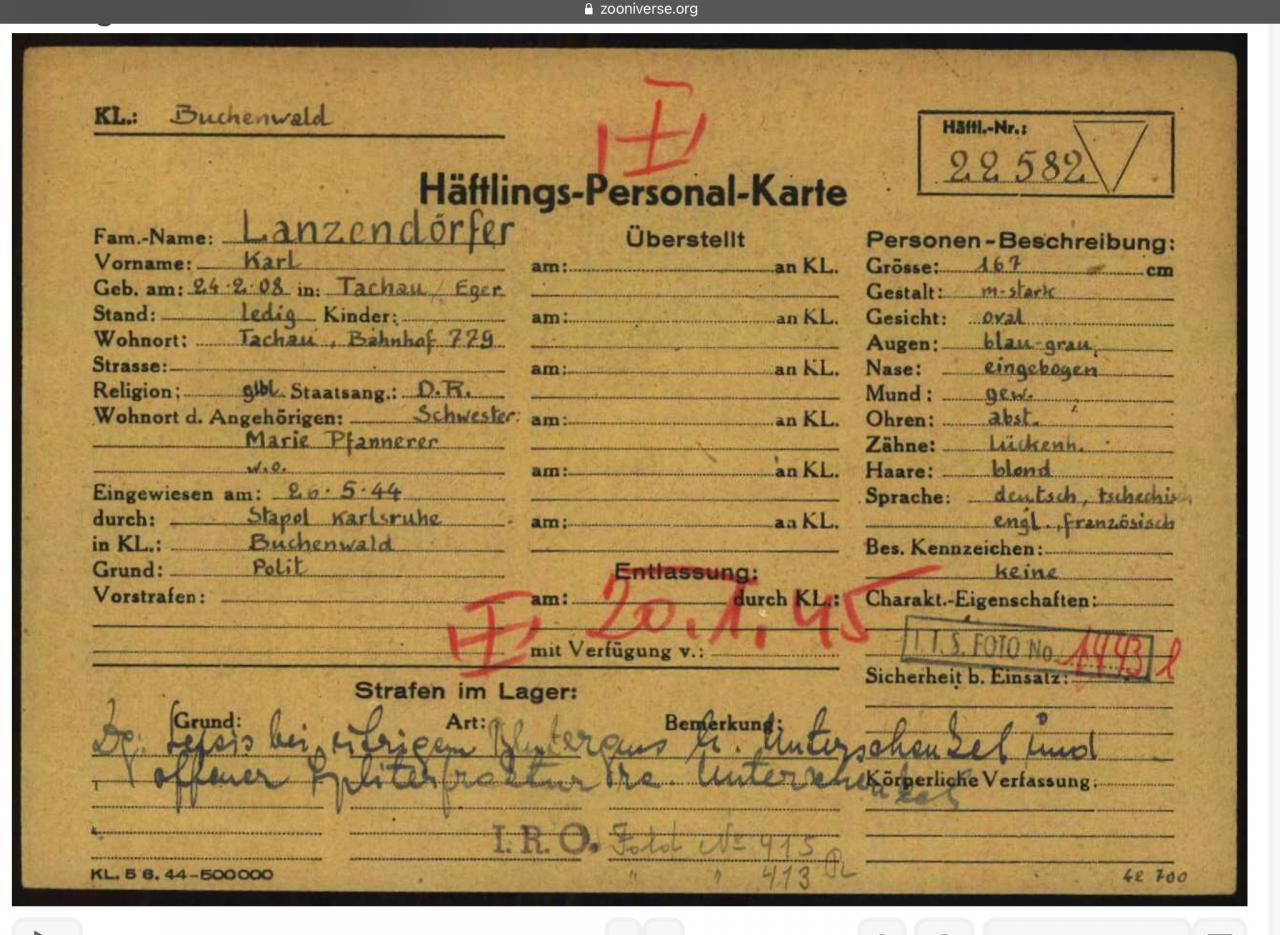 zooniverse.org
KL.: Buchenwald
Häftl.-Nr.:
22 582
Häftlings-Personal-Karte
Fam.-Name: Lanzendörfer
Vorname: Karl
Geb. am: 24.2.08 in: Tachau / Eger
Stand: ledig Kinder:
Wohnort: Tachau, Bahnhof 779
Strasse:
Religion: glbl. Staatsang.: D.R.
Wohnort d. Angehörigen: Schwester:
Marie Pfannerer
w.o.
Eingewiesen am: 26.5.44
durch: Stapol Karlsruhe
in KL.: Buchenwald
Grund: Polit
Vorstrafen:
Überstellt
am: an KL.
am: an KL.
am: an KL.
am: an KL.
am: an KL.
am: an KL.
Entlassung:
am: durch KL.:
20.1.45
mit Verfügung v.:
Personen-Beschreibung:
Grösse: 167 cm
Gestalt: m-stark
Gesicht: oval
Augen: blau-grau
Nase: eingebogen
Mund: gew.
Ohren: abst.
Zähne: Lückenh.
Haare: blond
Sprache: deutsch, tschechisch
engl., französisch
Bes. Kennzeichen:
keine
Charakt.-Eigenschaften:
I.T.S. FOTO No. 1443
Sicherheit b. Einsatz:
Körperliche Verfassung:
Strafen im Lager:
Grund: Art: Bemerkung:
Sepsis bei Unterschenkel und
offener Unterschenkel
I.R.O. Fold No 415
" " 413
KL. 5 6. 44-500000